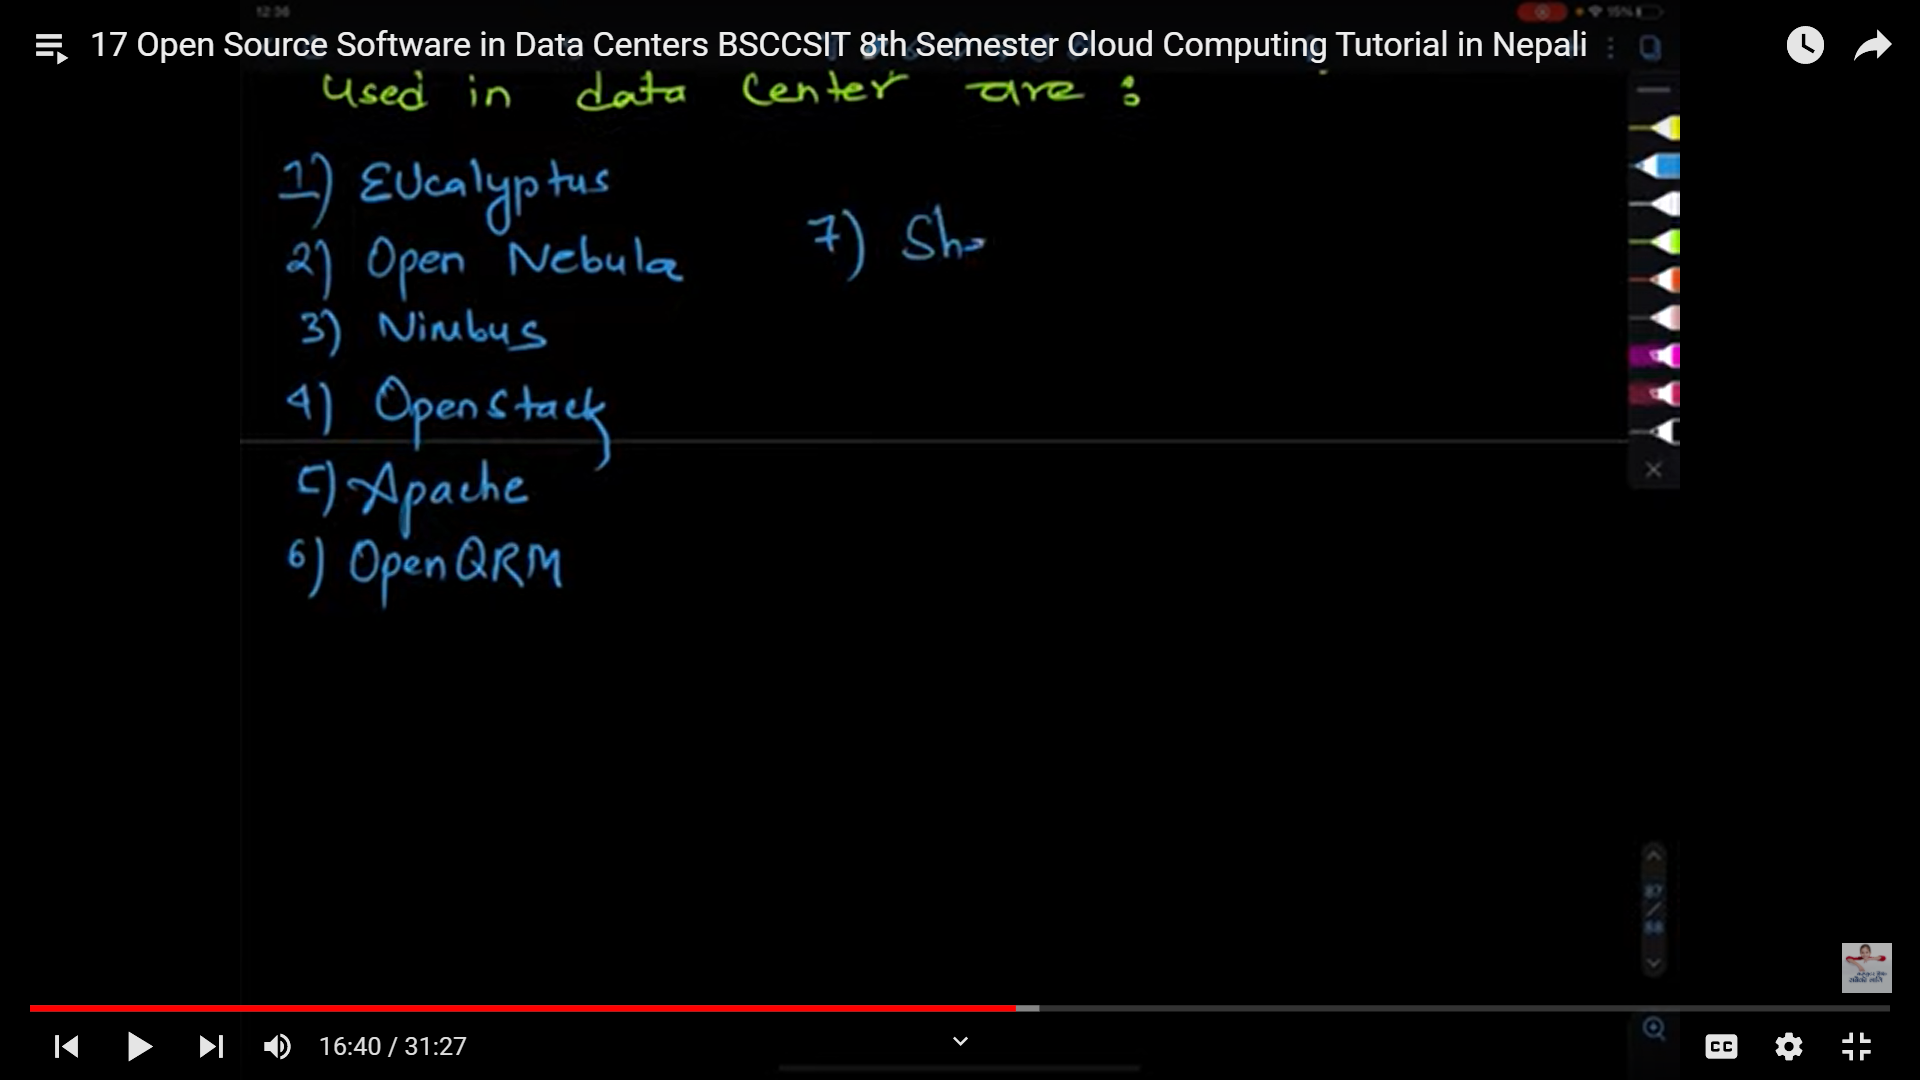 12:36
15%
17 Open Source Software in Data Centers BSCCSIT 8th Semester Cloud Computing Tutorial in Nepali
Used in data Center are :
1) Eucalyptus
2) Open Nebula
3) Nimbus
4) Openstack
5) Apache
6) OpenQRM
7) Sh
87
/
88
16:40 / 31:27
CC